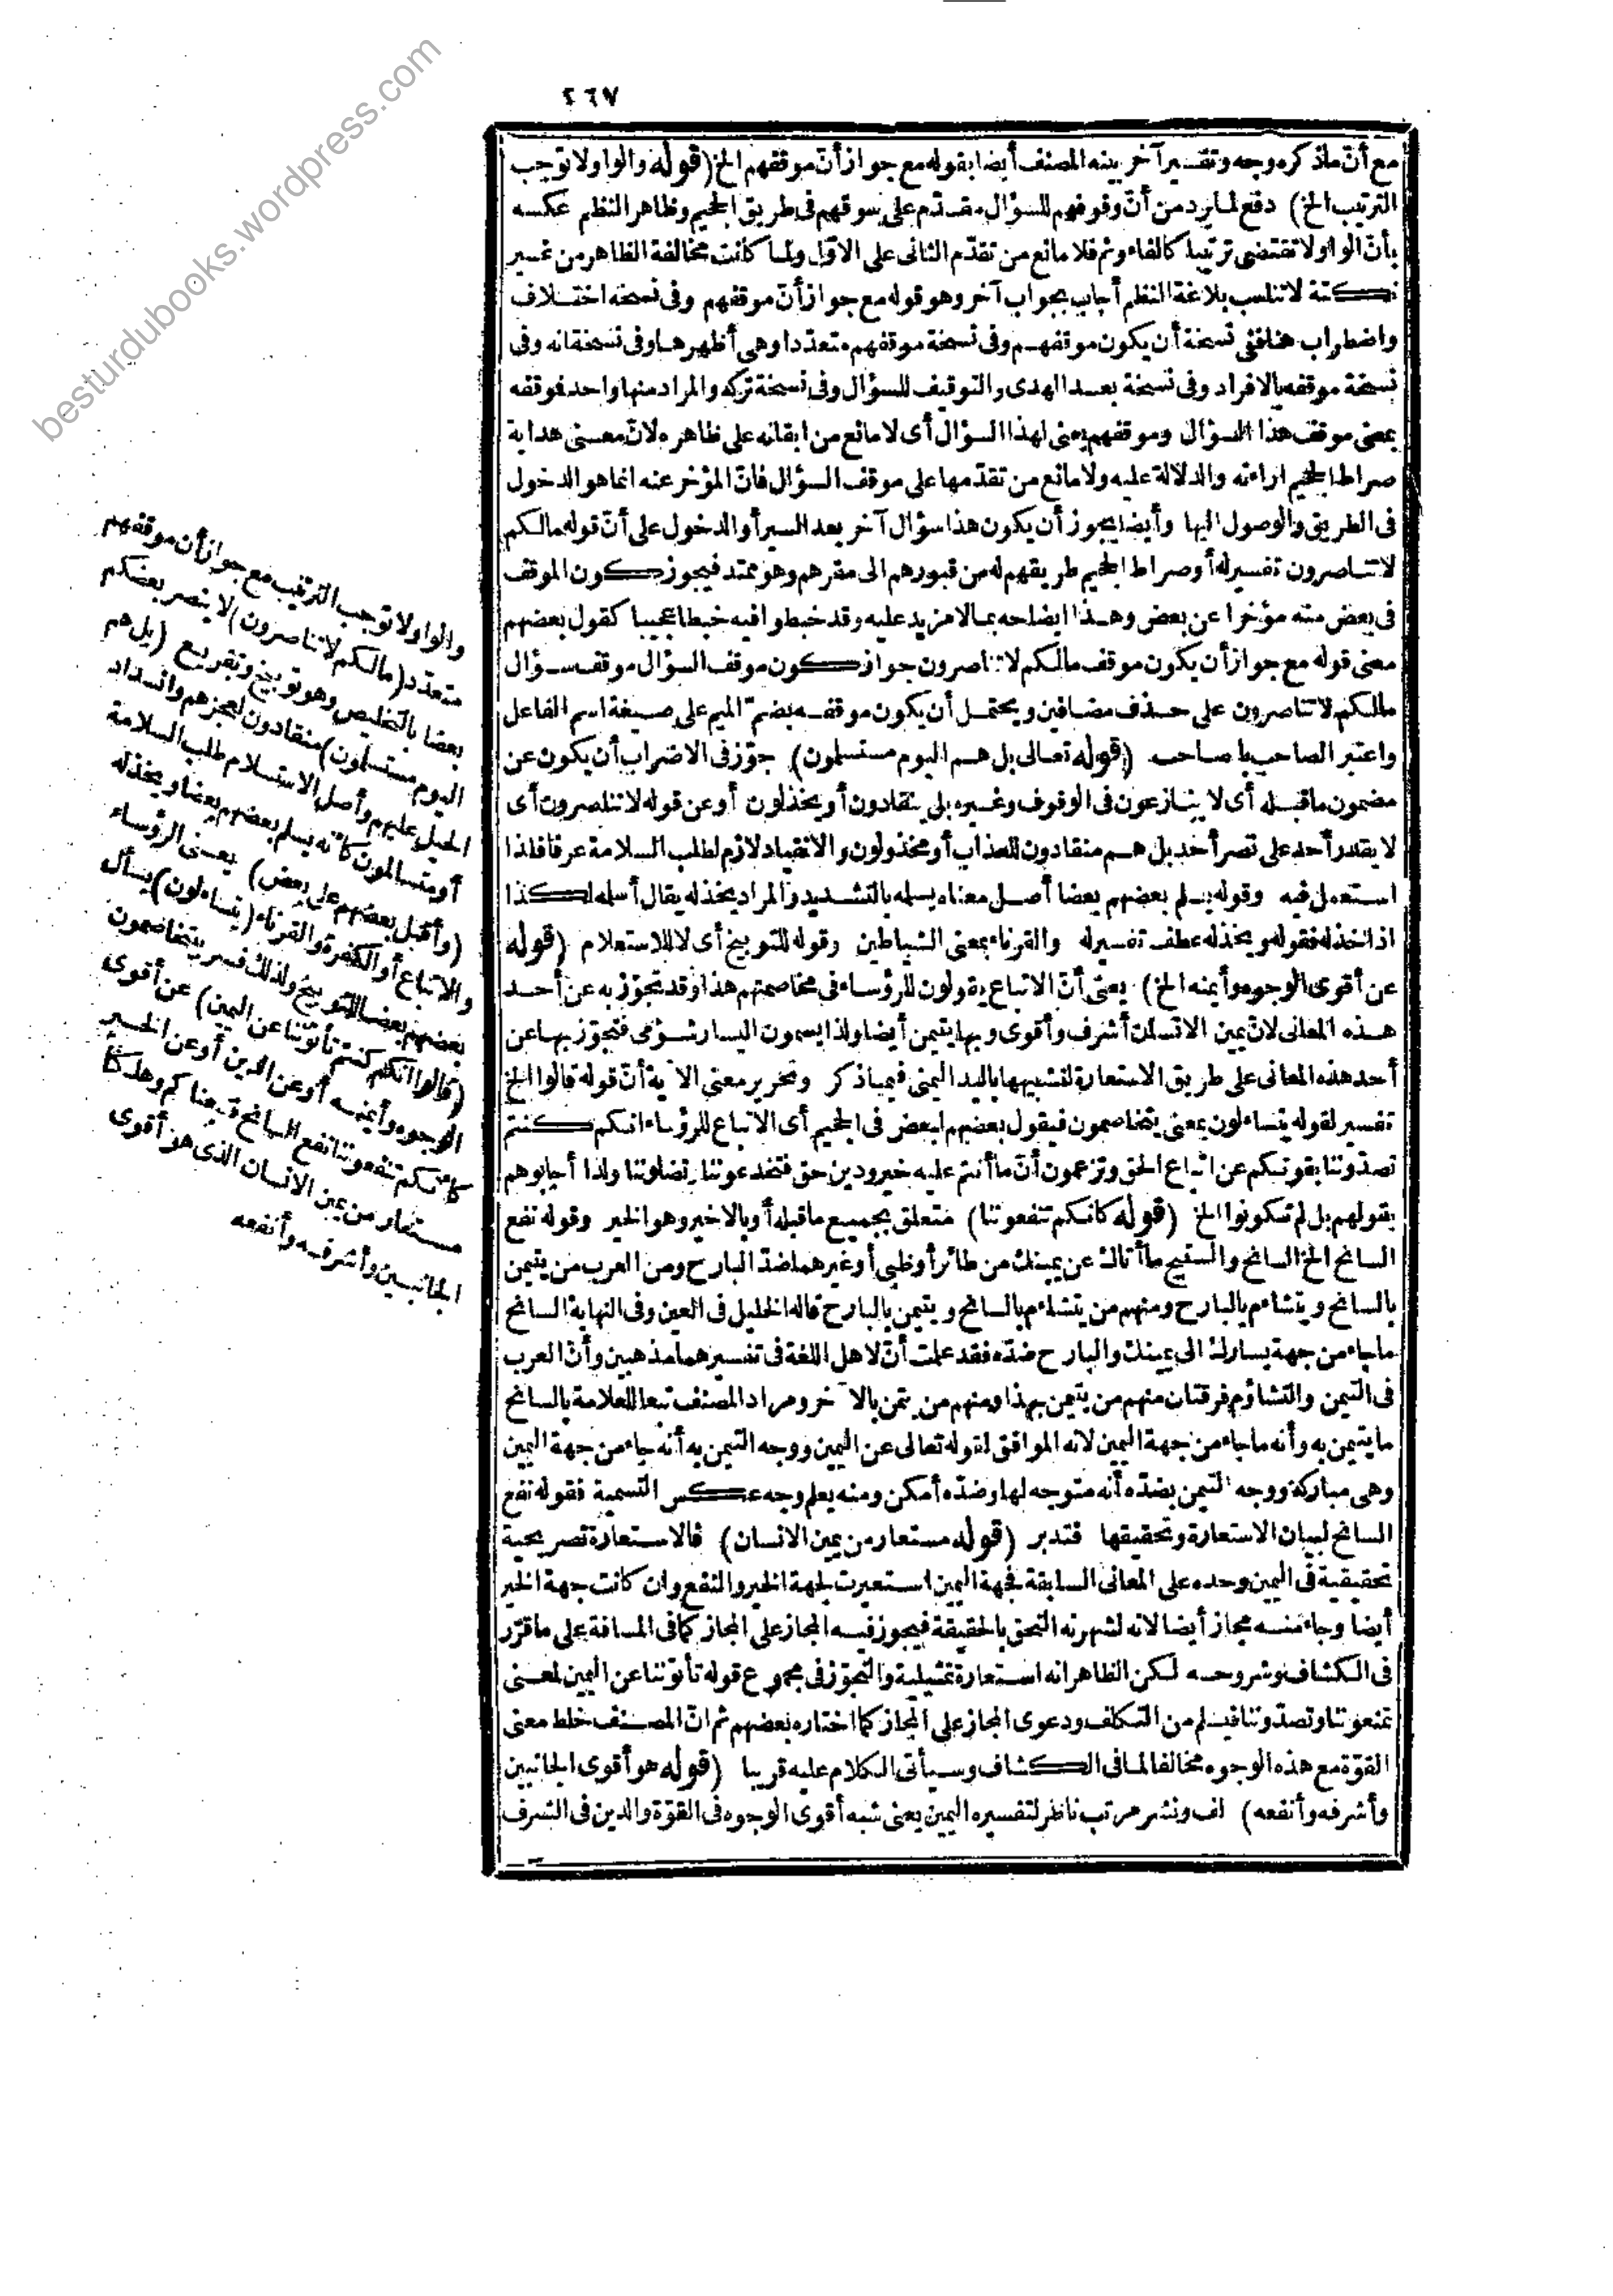 ٢٦٧
مع أنّ ماذكره وجه وتفسير آخر بينه المصنف أيضا بقوله مع جواز أنّ موقفهم الخ (قوله والواو لا توجب
الترتيب الخ) دفع لما يرد من أنّ وقوفهم للسؤال مقدّم على سوقهم فى طريق الجحيم وظاهر النظم عكسه
بأنّ الواو لا تقتضى ترتيبا كالفاء وثم فلا مانع من تقدّم الثانى على الاوّل ولما كانت مخالفة الظاهر من غير
نكتة لا تناسب بلاغة النظم أجاب بجواب آخر وهو قوله مع جواز أنّ موقفهم وفى نسخه اختلاف
واضطراب هنا ففى نسخة أن يكون موقفهم وفى نسخة موقفهم متعدّدا وهى أظهرها وفى نسخة انه وفى
نسخة موقفه بالافراد وفى نسخة بعد الهدى والتوقيف للسؤال وفى نسخة تركه والمراد منها واحد فموقفه
بمعنى موقف هذا السؤال وموقفهم يعنى لهذا السؤال أى لا مانع من ابقائه على ظاهره لانّ معنى هداية
صراط الجحيم اراءته والدلالة عليه ولا مانع من تقدّمها على موقف السؤال فانّ المؤخر عنه انما هو الدخول
فى الطريق والوصول اليها وأيضا يجوز أن يكون هذا سؤال آخر بعد السير أو الدخول على أنّ قوله مالكم
لا تناصرون تفسير له أو صراط الجحيم طريقهم له من قبورهم الى مقرهم وهو ممتد فيجوز كون الموقف
فى بعض منه مؤخرا عن بعض وهذا ايضاحه بما لا مزيد عليه وقد خبطوا فيه خبطا عجيبا كقول بعضهم
معنى قوله مع جواز أن يكون موقف مالكم لا تناصرون جواز كون موقف السؤال موقف سؤال
مالكم لا تناصرون على حذف مضافين ويحتمل أن يكون موقفه بضم الميم على صيغة اسم الفاعل
واعتبر الصاحب يا صاحب (قوله تعالى بل هم اليوم مستسلمون) جوّز فى الاضراب أن يكون عن
مضمون ما قبله أى لا ينازعون فى الوقوف وغيره بل ينقادون أو يخذلون أو عن قوله لا تناصرون أى
لا يقدر أحد على نصر أحد بل هم منقادون للعذاب أو مخذولون والانقياد لازم لطلب السلامة عرفا فلذا
استعمل فيه وقوله يسلم بعضهم بعضا أصل معناه يسلمه بالتشديد والمراد يخذله يقال أسلمه لكذا
اذا خذله فقوله ويخذله عطف تفسير له والقرناء بمعنى الشياطين وقوله للتوبيخ أى لا للاستعلام (قوله
عن أقوى الوجوه وأيمنه الخ) يعنى أنّ الاتباع يقولون للرؤساء فى مخاصمتهم هذا وقد تجوّز به عن أحد
هذه المعانى لانّ يمين الانسان أشرف وأقوى وبها يتيمن أيضا ولذا يسمون اليسار شؤمى فتجوّز بها عن
أحد هذه المعانى على طريق الاستعارة لتشبيهها باليد اليمنى فيما ذكر وتحرير معنى الآية أنّ قوله قالوا الخ
تفسير لقوله يتساءلون بمعنى يتخاصمون فيقول بعضهم لبعض فى الجحيم أى الاتباع للرؤساء انكم كنتم
تصدّوننا بقوتكم عن اتباع الحق وتزعمون أنّ ما أنتم عليه خير ودين حق فتخدعوننا وتضلوننا ولذا أجابوهم
بقولهم بل لم تكونوا الخ (قوله كانكم تنفعوننا) متعلق بجميع ما قبله أو بالاخير وهو الخير وقوله نفع
السانح الخ السانح والسنيح ما أتاك عن يمينك من طائر أو ظبى أو غيرهما ضدّ البارح ومن العرب من يتيمن
بالسانح ويتشاءم بالبارح ومنهم من يتشاءم بالسانح ويتيمن بالبارح قاله الخليل فى العين وفى النهاية السانح
ما جاء من جهة يسارك الى يمينك والبارح ضدّه فقد علمت أنّ لاهل اللغة فى تفسيرهما مذهبين وأنّ العرب
فى التيمن والتشاؤم فرقتان منهم من يتيمن بهذا ومنهم من يتمن بالآخر ومراد المصنف تبعا للعلامة بالسانح
ما يتيمن به وأنه ما جاء من جهة اليمين لانه الموافق لقوله تعالى عن اليمين ووجه التيمن به أنه جاء من جهة اليمين
وهى مباركة ووجه التيمن بضدّه أنه متوجه لها وضدّه أمكن ومنه يعلم وجه عكس التسمية فقوله نفع
السانح لبيان الاستعارة وتحقيقها فتدبر (قوله مستعار من يمين الانسان) فالاستعارة تصريحية
تحقيقية فى اليمين وحده على المعانى السابقة فجهة اليمين استعيرت لجهة الخير والنفع وان كانت جهة الخير
أيضا وجاء منه مجاز أيضا الا انه لشهرته التحق بالحقيقة فيجوز فيه المجاز على المجاز كما فى المسافة على ما قرّر
فى الكشاف وشروحه لكن الظاهر انه استعارة تمثيلية والتجوّز فى مجموع قوله تأتوننا عن اليمين لمعنى
تمنعوننا وتصدّوننا فيسلم من التكلف ودعوى المجاز على المجاز كما اختاره بعضهم ثم انّ المصنف خلط معنى
القوّة مع هذه الوجوه مخالفا لما فى الكشاف وسيأتى الكلام عليه قريبا (قوله هو أقوى الجانبين
وأشرفه وأنفعه) لف ونشر مرتب ناظر لتفسيره اليمين يعنى شبه أقوى الوجوه فى القوّة والدين فى الشرف
والواو لا توجب الترتيب مع جواز أن موقفهم
متعدّد (مالكم لا تناصرون) لا ينصر بعضكم
بعضا بالتخليص وهو توبيخ وتقريع (بل هم
اليوم مستسلمون) منقادون لعجزهم وانسداد
الحيل عليهم وأصل الاستسلام طلب السلامة
أو متسالمون كانه يسلم بعضهم بعضا ويخذله
(وأقبل بعضهم على بعض) يعنى الرؤساء
والاتباع أو الكفرة والقرناء (يتساءلون) يسأل
بعضهم بعضا للتوبيخ ولذلك فسر بيتخاصمون
(قالوا انكم كنتم تأتوننا عن اليمين) عن أقوى
الوجوه وأيمنه أو عن الدين أو عن الخير
كانكم تنفعوننا نفع السانح فتبعناكم وهلكنا
مستعار من يمين الانسان الذى هو أقوى
الجانبين وأشرفه وأنفعه
besturdubooks.wordpress.com